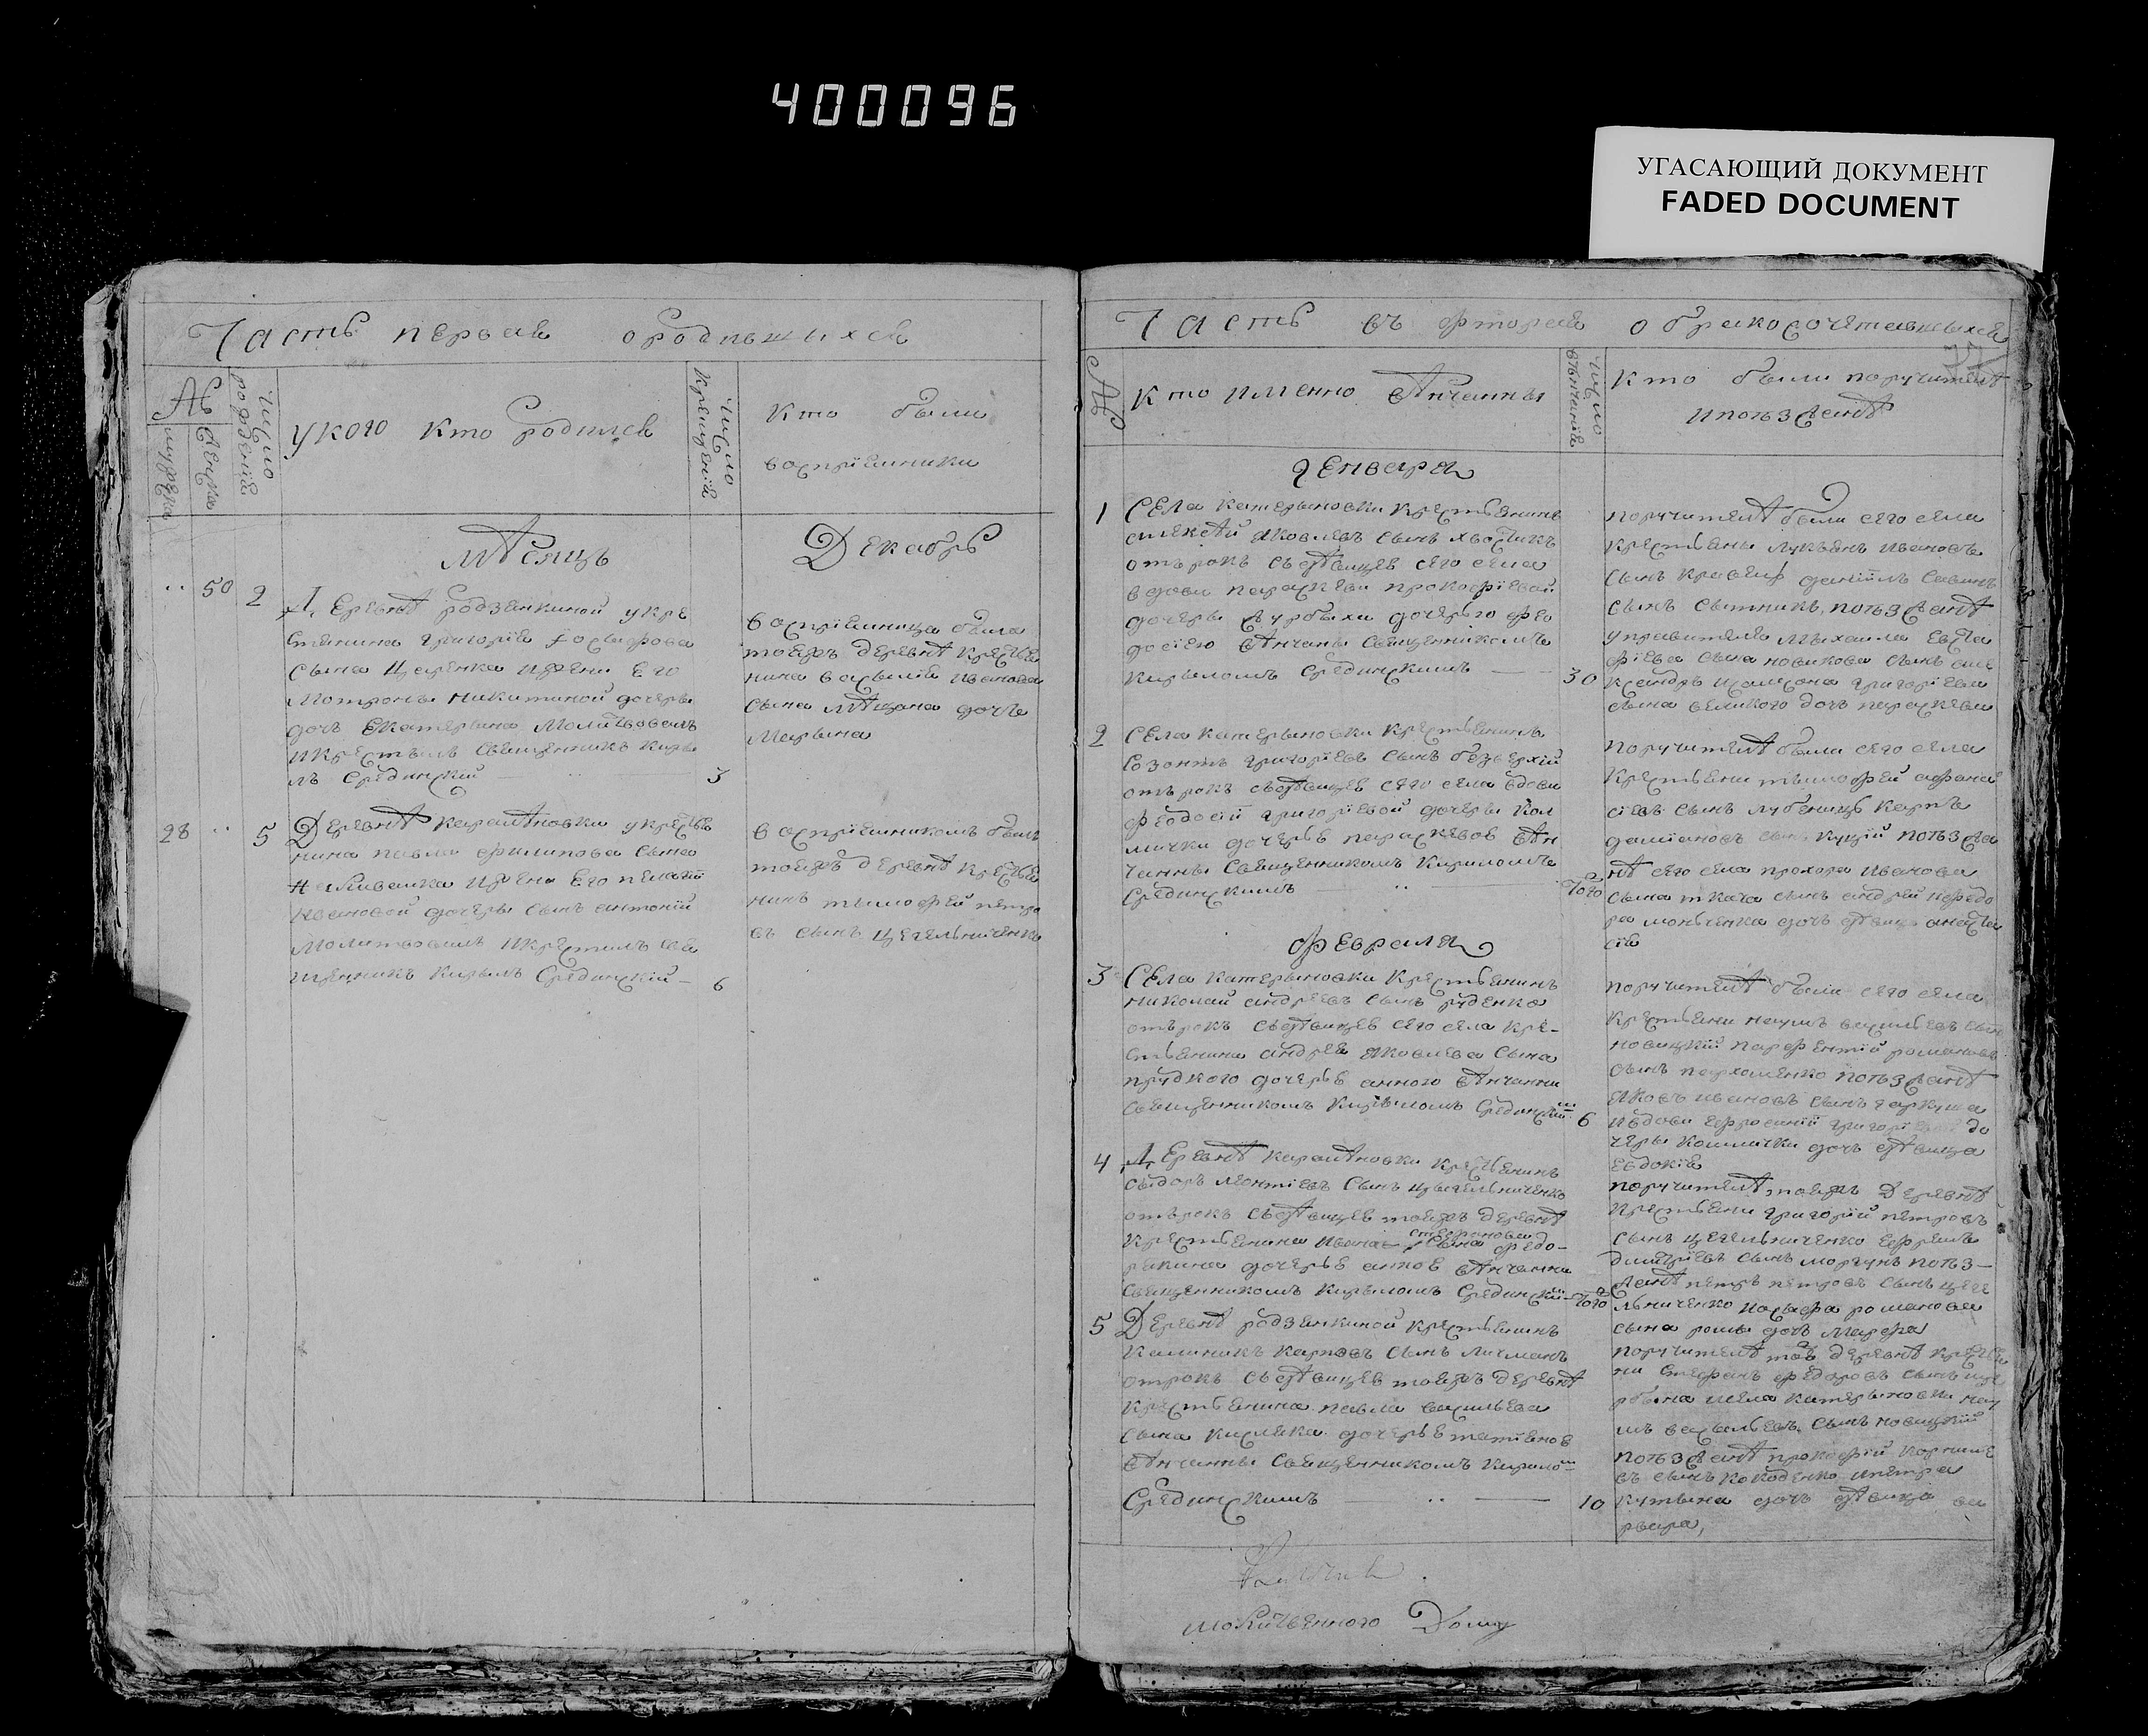 400096
УГАСАЮЩИЙ ДОКУМЕНТ
FADED DOCUMENT
Часть первая ородившыхся
№
мужеска
женска
число рождений
укого кто родился
число крещений
кто были
воспрїемники
мѣсяць
Декабрь
50 2
Деревнѣ родзенкиной укре
стянина григорїя
сына жены его
мотроны никитиной дочеры
дочь екатерына молитвовалъ
икрестилъ священникъ кири
лъ Срединскїй 3
воспрїемница была
тояжъ деревнѣ крестья
нина василїя иванова
сына дочь
марына
28 5
Деревнѣ карпѣновки укрестья
нина павла филипова сына
наливайка ижены его пелагїи
ивановой дочеры сынъ антонїй
молитвовалъ икрестилъ свя
щенникъ кирылъ Срединскїй 6
воспрїемникомъ былъ
тояжъ деревнѣ крестья
нинъ тымофей петро
въ сынъ цегельниченко
Часть въ фторая обракосочетавшыхся
№
кто именно вѣнчанны
число вѣнчанїя
кто были поручителѣ
ипотьзжанѣ
генваря
1 Села катерыновки крестьянинъ
алексѣй яковлевъ сынъ хвостикъ
отърокъ съдѣвицею сего села
вдовы параскевы прокофїевой
дочеры дочерью фео
досїею вѣнчаны священникомъ
кирыломъ Срединскимъ 30
поручителѣ были сего села
крестьяны лукьянъ ивановъ
сынъ кравецъ данїилъ савинъ
сынъ сытникъ, потьзжанѣ
управителя мыхаила евста
фїева сына новикова сынъ але
ксандръ григорїева
сына великого дочь параскева
2 Села катерыновки крестьянинъ
созонтъ григорїевъ сынъ безверхїй
отърокъ съдѣвицею сего села вдовы
феодосїи григорїевой дочеры кол
мички дочерью параскевою вѣн
чанны священникомъ кириломъ
Срединскимъ того
поручителѣ были сего села
крестьяни тымофей афана
сїевъ сынъ лубенецъ карпъ
дамїановъ сынъ куцїй потьзжа
нѣ сего села прохора иванова
сына ткача сынъ андрей ифедо
ра дочь дѣвица анаста
сїя
февраля
3 Села катерыновки крестьянинъ
николай андреевъ сынъ руденко
отърокъ съдѣвицею сего села кре-
стьянина андрея яковлева сына
прудкого дочерью анною вѣнчанны
священникомъ кирыломъ Срединскимъ 6
поручителѣ были сего села
крестьяни наумъ васильевъ сынъ
новицкїй парфентїй романовъ
сынъ пархоменко потьзжанѣ
яковъ ивановъ сынъ гаркуша
ивдовы ефросинїи григорїевой до
черы колмички дочь дѣвица
евдокїя
4 Деревнѣ карпѣновки крестьянинъ
сыдоръ леонтїевъ сынъ цыгельниченко
отърокъ съдѣвицею тояжъ деревнѣ
крестьянина ивана стефанова сына федо-
ракина дочерью анною вѣнчанны
священникомъ кирыломъ Срединскимъ того
поручителѣ тояжъ Деревнѣ
крестьяни григорїй петровъ
сынъ цегельниченко ефремъ
димитрїевъ сынъ моргунъ потьз-
жанѣ петръ петровъ сынъ цеге
льниченко иосыфа романова
сына дочь марфа
5 Деревнѣ родзенкиной крестьянинъ
калиникъ карповъ сынъ личманъ
отрокъ съдѣвицею тояжъ деревнѣ
крестьянина павла васильева
сына кисляка дочерью татїяною
вѣнчанны священникомъ кирыломъ
Срединскимъ 10
поручителѣ тоя деревнѣ крестья
ни стефанъ федоровъ сынъ
исела катерыновки нау
мъ васильевъ сынъ новицкїй
потьзжанѣ прокофїй
въ сынъ ипетра
дочь дѣвица ва
рвара,
Дому